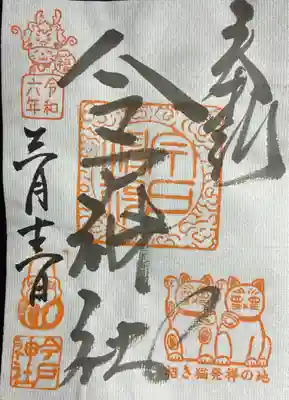 奉拝
今戸神社
今戸神社
福
令和
六年
三月
今戸
神社
招き猫発祥の地